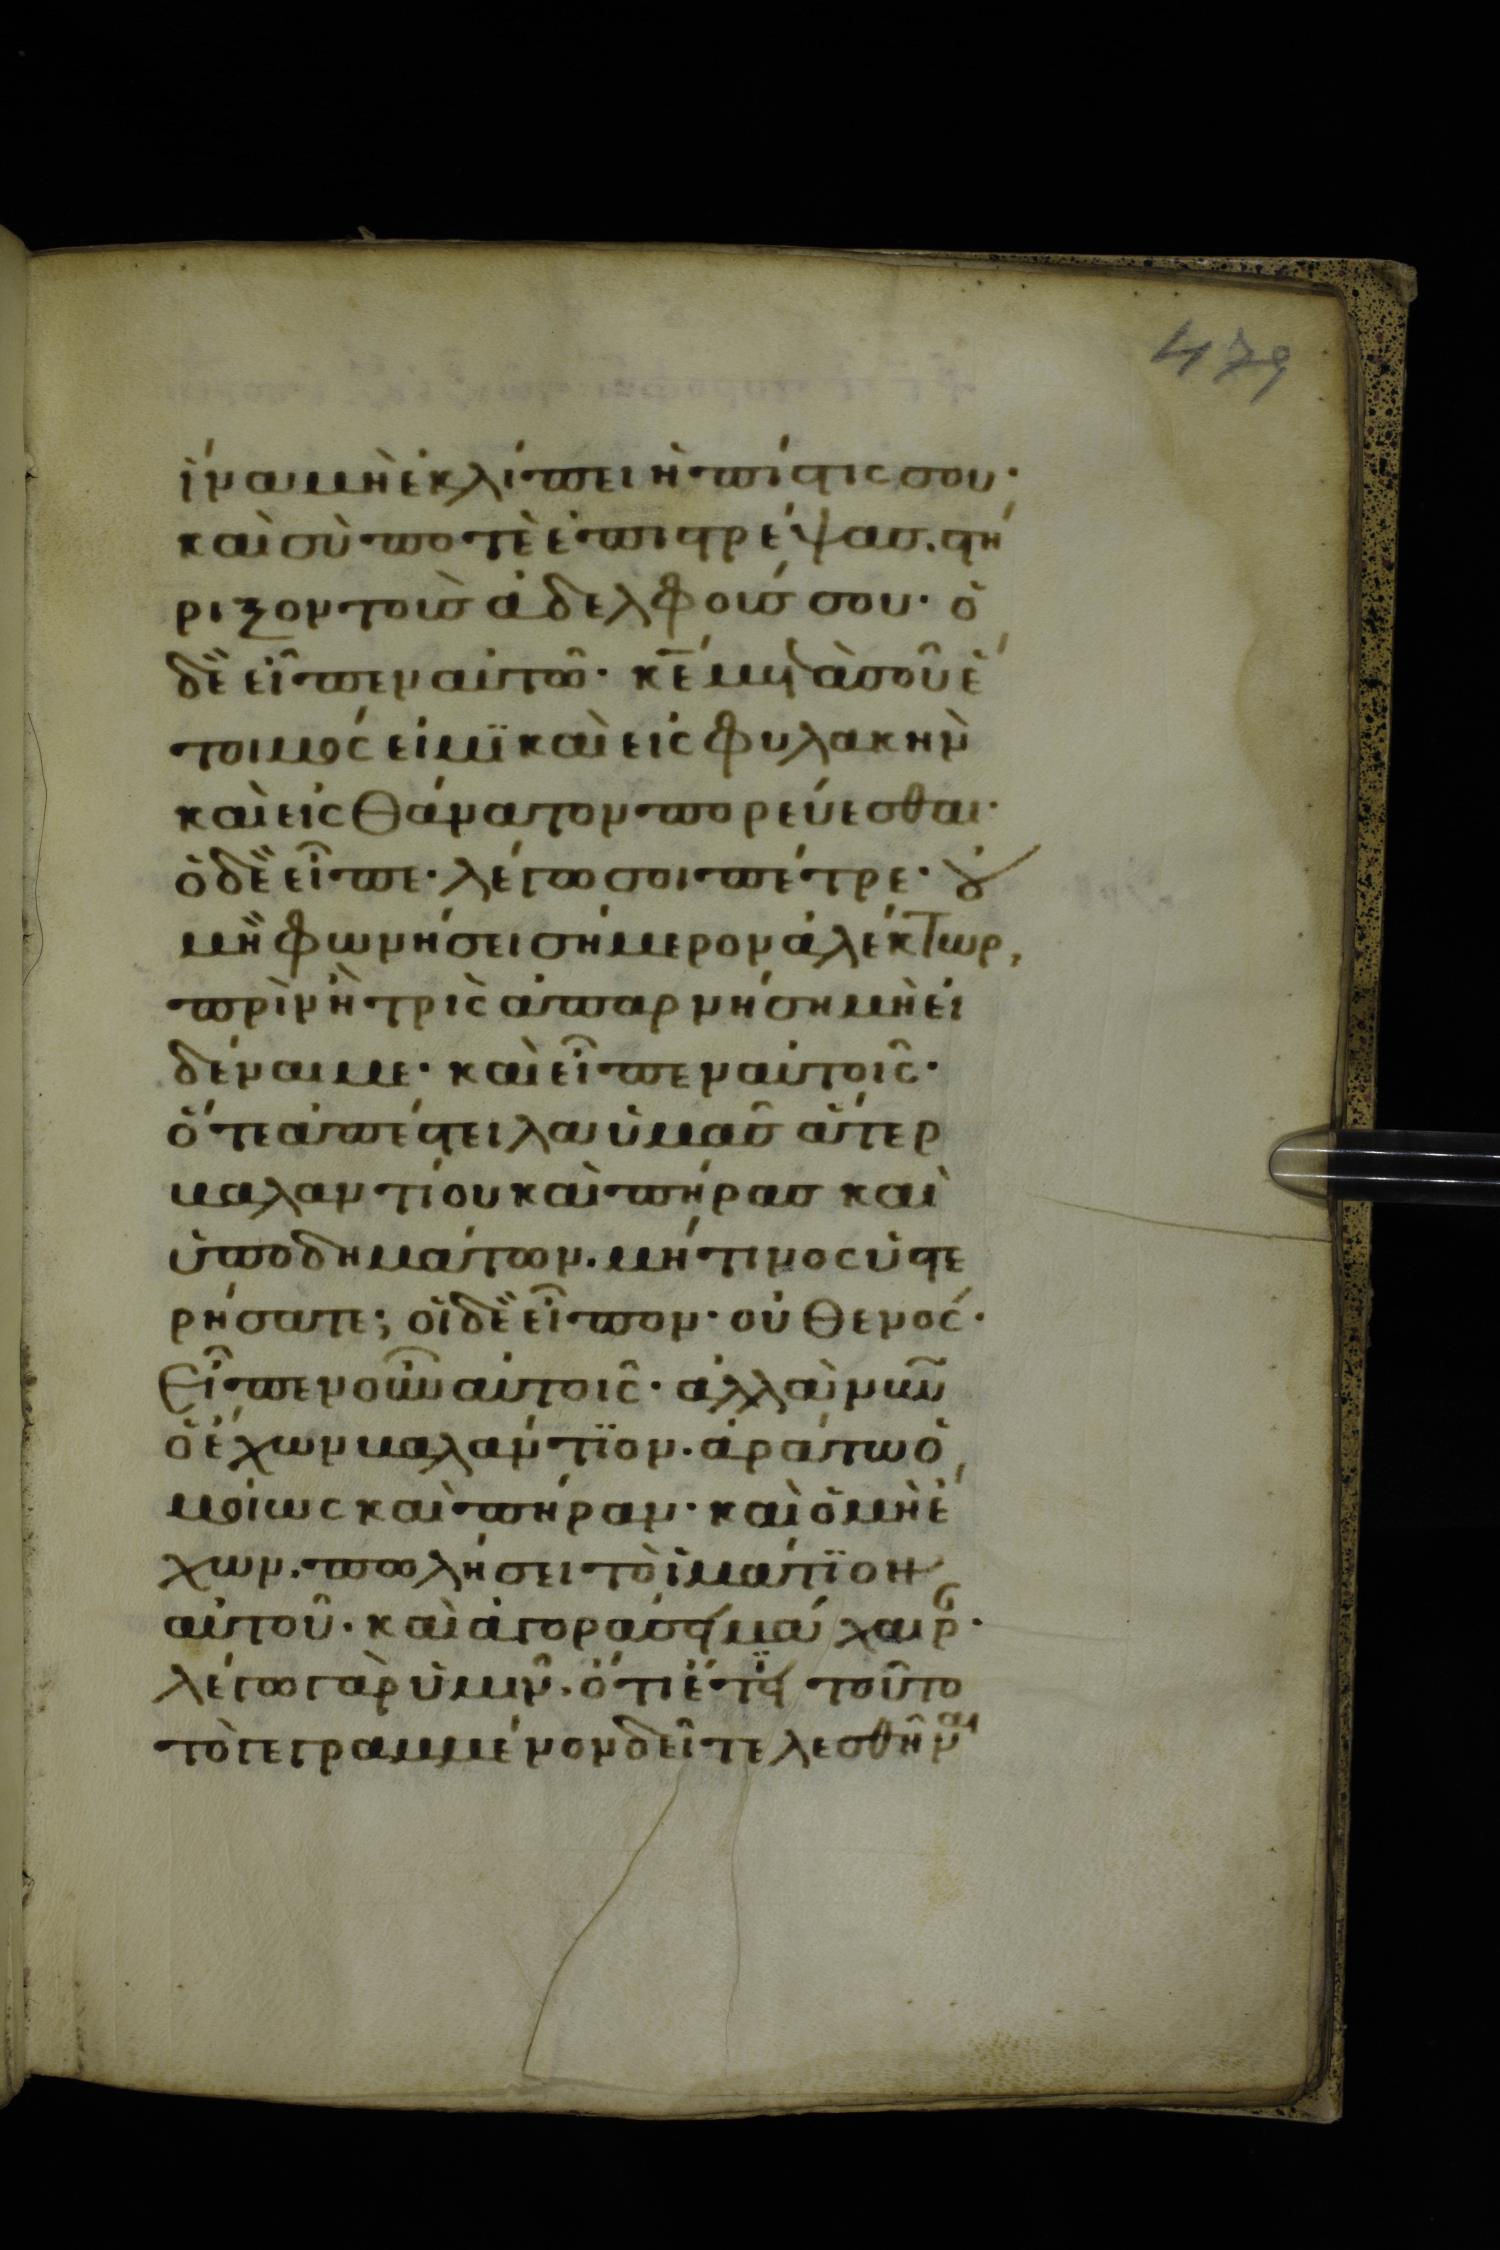 479
ἵνα μὴ ἐκλίπει ἡ πίστις σου·
καὶ σὺ ποτὲ ἐπιστρέψας. στή
ριζον τοὺς ἀδελφούς σου· ὁ
δὲ εἶπεν αὐτῶ· κ̅ε̅ μετὰ σοῦ ἕ
τοιμός εἰμϊ καὶ εἰς φυλακὴν
καὶ εἰς θάνατον πορεύεσθαι·
ὁ δὲ εἶπε· λέγω σοι πέτρε· οὐ
μὴ φωνήσει σήμερον ἀλέκτωρ,
πρὶν ἢ τρὶς ἀπαρνήση μὴ εἰ
δέναι με· καὶ εἶπεν αὐτοῖς·
ὅτε ἀπέστειλα ὑμᾶς ἄτερ
βαλαντίου καὶ πήρας καὶ
ὑποδημάτων. μή τινος ὑστε
ρήσατε; οἱ δὲ εἶπον· οὐθενός·
Εἶπεν οὖν αὐτοῖς· ἀλλὰ νῦν
ὁ ἔχων βαλάντϊον. ἀράτω ὁ
μοίως καὶ πήραν· καὶ ὁ μὴ ἔ
χων. πωλήσει τὸ ἱμάτϊον
αὐτοῦ· καὶ ἀγοράσει μάχαιρ·
λέγω γὰρ ὑμῖν. ὅτι ἔτϊ τοῦτο
τὸ γεγραμμένον δεῖ τελεσθῆναι